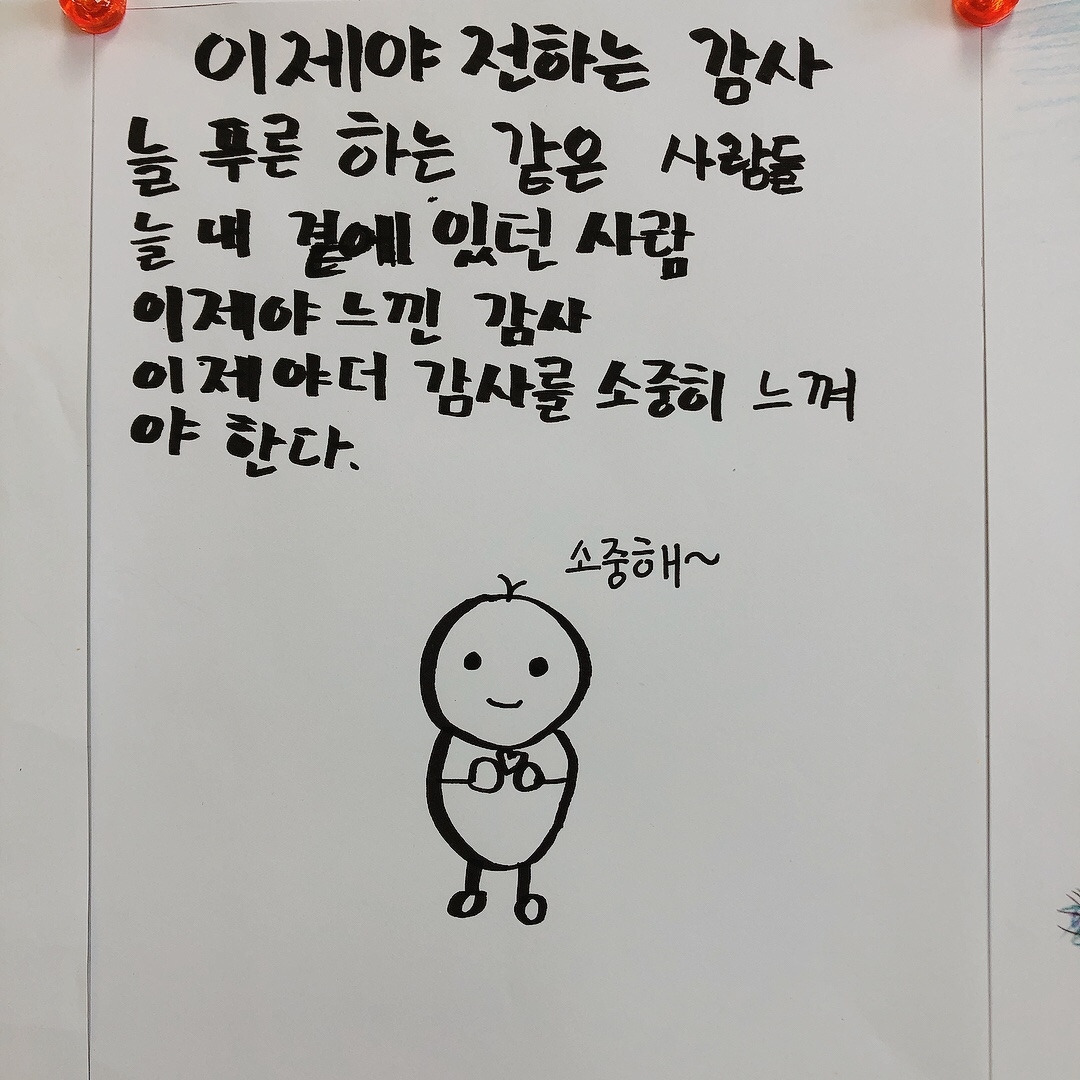 이제야 전하는 감사
늘 푸른 하는 같은 사람들
늘 내 곁에 있던 사람
이제야 느낀 감사
이제야더 감사를 소중히 느껴
야 한다.
소중해~